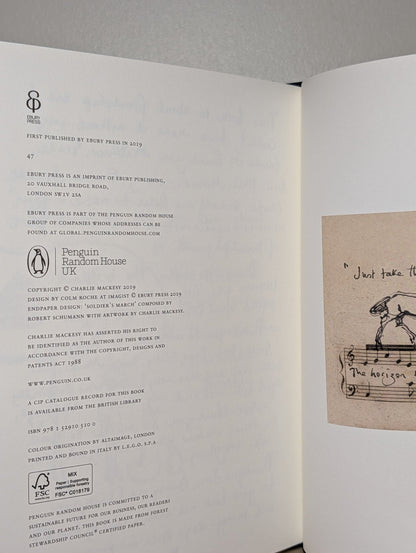 EBURY
PRESS
FIRST PUBLISHED BY EBURY PRESS IN 2019
47
EBURY PRESS IS AN IMPRINT OF EBURY PUBLISHING,
20 VAUXHALL BRIDGE ROAD,
LONDON SW1V 2SA
EBURY PRESS IS PART OF THE PENGUIN RANDOM HOUSE
GROUP OF COMPANIES WHOSE ADDRESSES CAN BE
FOUND AT GLOBAL.PENGUINRANDOMHOUSE.COM
Penguin
Random House
UK
COPYRIGHT © CHARLIE MACKESY 2019
DESIGN BY COLM ROCHE AT IMAGIST © EBURY PRESS 2019
ENDPAPER DESIGN: 'SOLDIER'S MARCH' COMPOSED BY
ROBERT SCHUMANN WITH ARTWORK BY CHARLIE MACKESY.
CHARLIE MACKESY HAS ASSERTED HIS RIGHT TO
BE IDENTIFIED AS THE AUTHOR OF THIS WORK IN
ACCORDANCE WITH THE COPYRIGHT, DESIGNS AND
PATENTS ACT 1988
WWW.PENGUIN.CO.UK
A CIP CATALOGUE RECORD FOR THIS BOOK
IS AVAILABLE FROM THE BRITISH LIBRARY
ISBN 978 1 52910 510 0
COLOUR ORIGINATION BY ALTAIMAGE, LONDON
PRINTED AND BOUND IN ITALY BY L.E.G.O. S.P.A.
FSC
www.fsc.org
MIX
Paper | Supporting
responsible forestry
FSC® C018179
PENGUIN RANDOM HOUSE IS COMMITTED TO A
SUSTAINABLE FUTURE FOR OUR BUSINESS, OUR READERS
AND OUR PLANET. THIS BOOK IS MADE FROM FOREST
STEWARDSHIP COUNCIL® CERTIFIED PAPER.
"Just take th
The horizon